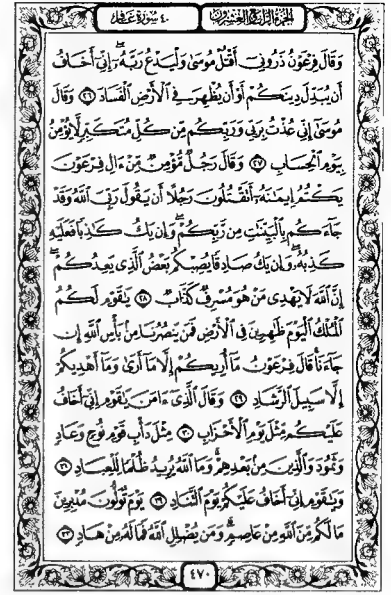 الجزء الرابع والعشرون
٤٠ سورة غافر
وَقَالَ فِرْعَوْنُ ذَرُونِي أَقْتُلْ مُوسَىٰ وَلْيَدْعُ رَبَّهُ إِنِّي أَخَافُ
أَن يُبَدِّلَ دِينَكُمْ أَوْ أَن يُظْهِرَ فِي الْأَرْضِ الْفَسَادَ ٢٦ وَقَالَ
مُوسَىٰ إِنِّي عُذْتُ بِرَبِّي وَرَبِّكُم مِّن كُلِّ مُتَكَبِّرٍ لَّا يُؤْمِنُ
بِيَوْمِ الْحِسَابِ ٢٧ وَقَالَ رَجُلٌ مُّؤْمِنٌ مِّنْ ءَالِ فِرْعَوْنَ
يَكْتُمُ إِيمَٰنَهُ أَتَقْتُلُونَ رَجُلًا أَن يَقُولَ رَبِّيَ اللَّهُ وَقَدْ
جَاءَكُم بِالْبَيِّنَٰتِ مِن رَّبِّكُمْ وَإِن يَكُ كَٰذِبًا فَعَلَيْهِ
كَذِبُهُ وَإِن يَكُ صَادِقًا يُصِبْكُم بَعْضُ الَّذِي يَعِدُكُمْ
إِنَّ اللَّهَ لَا يَهْدِي مَنْ هُوَ مُسْرِفٌ كَذَّابٌ ٢٨ يَٰقَوْمِ لَكُمُ
الْمُلْكُ الْيَوْمَ ظَٰهِرِينَ فِي الْأَرْضِ فَمَن يَنصُرُنَا مِن بَأْسِ اللَّهِ إِن
جَاءَنَا قَالَ فِرْعَوْنُ مَا أُرِيكُمْ إِلَّا مَا أَرَىٰ وَمَا أَهْدِيكُمْ
إِلَّا سَبِيلَ الرَّشَادِ ٢٩ وَقَالَ الَّذِي ءَامَنَ يَٰقَوْمِ إِنِّي أَخَافُ
عَلَيْكُم مِّثْلَ يَوْمِ الْأَحْزَابِ ٣٠ مِثْلَ دَأْبِ قَوْمِ نُوحٍ وَعَادٍ
وَثَمُودَ وَالَّذِينَ مِن بَعْدِهِمْ وَمَا اللَّهُ يُرِيدُ ظُلْمًا لِّلْعِبَادِ ٣١
وَيَٰقَوْمِ إِنِّي أَخَافُ عَلَيْكُمْ يَوْمَ التَّنَادِ ٣٢ يَوْمَ تُوَلُّونَ مُدْبِرِينَ
مَا لَكُم مِّنَ اللَّهِ مِنْ عَاصِمٍ وَمَن يُضْلِلِ اللَّهُ فَمَا لَهُ مِنْ هَادٍ ٣٣
٤٧٠